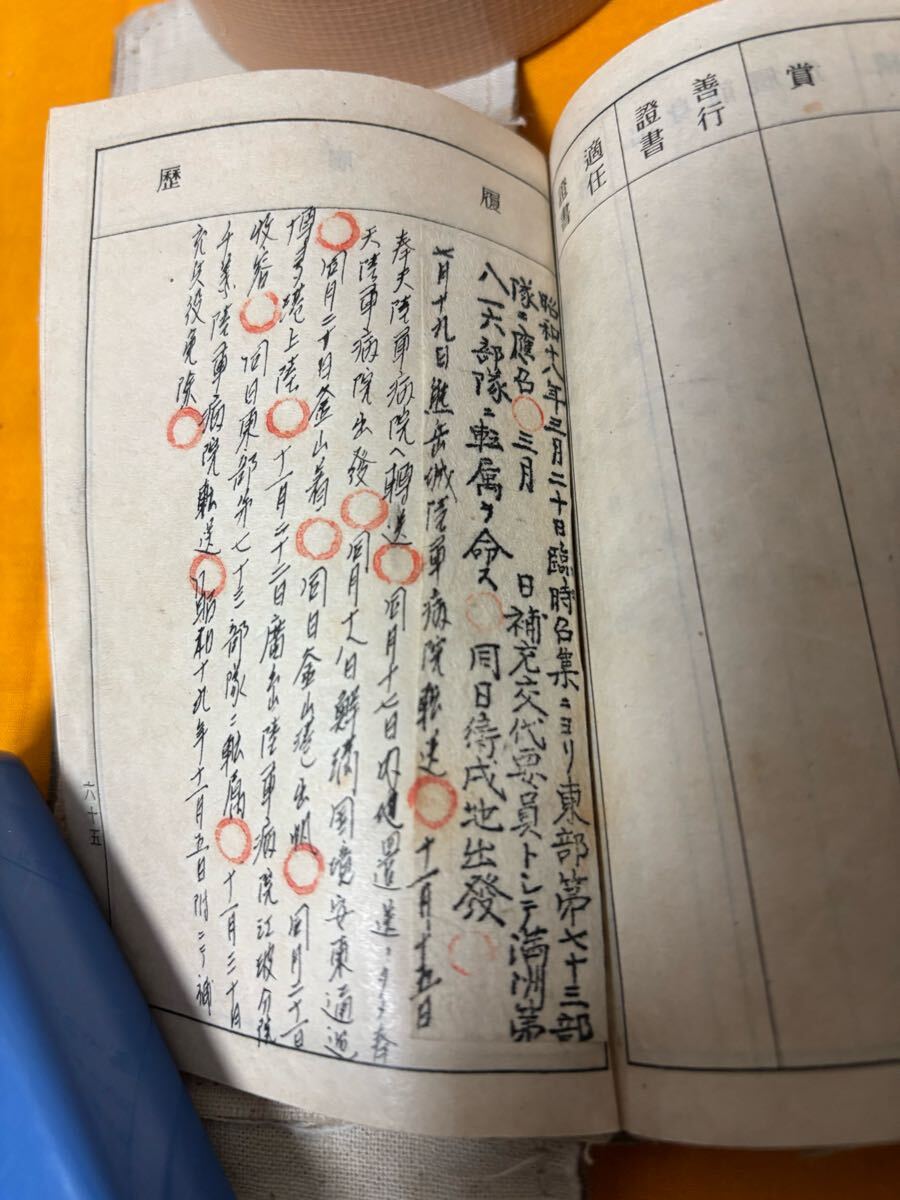 賞
善行
證書
適任
證書
履歷
昭和十八年三月二十日臨時召集ニヨリ東部第七十三部
隊ニ應召 三月 日補充交代要員トシテ満洲第
八一六部隊ニ転属ヲ命ス 同日待戍地出發
七月十九日熊岳城陸軍病院転送 十一月十五日
奉天陸軍病院ヘ轉送 同月十七日内地還送ノタメ奉
天陸軍病院出發 同月十八日鮮満国境安東通過
同月二十日釜山着 同日釜山港出帆 同月二十一日
上陸 十一月二十二日廣島陸軍病院江波分院
收容 同日東部第七十三部隊ニ転属 十一月三十日
千葉陸軍病院転送 昭和十九年十一月五日附ニテ補
充兵役免除
六十五